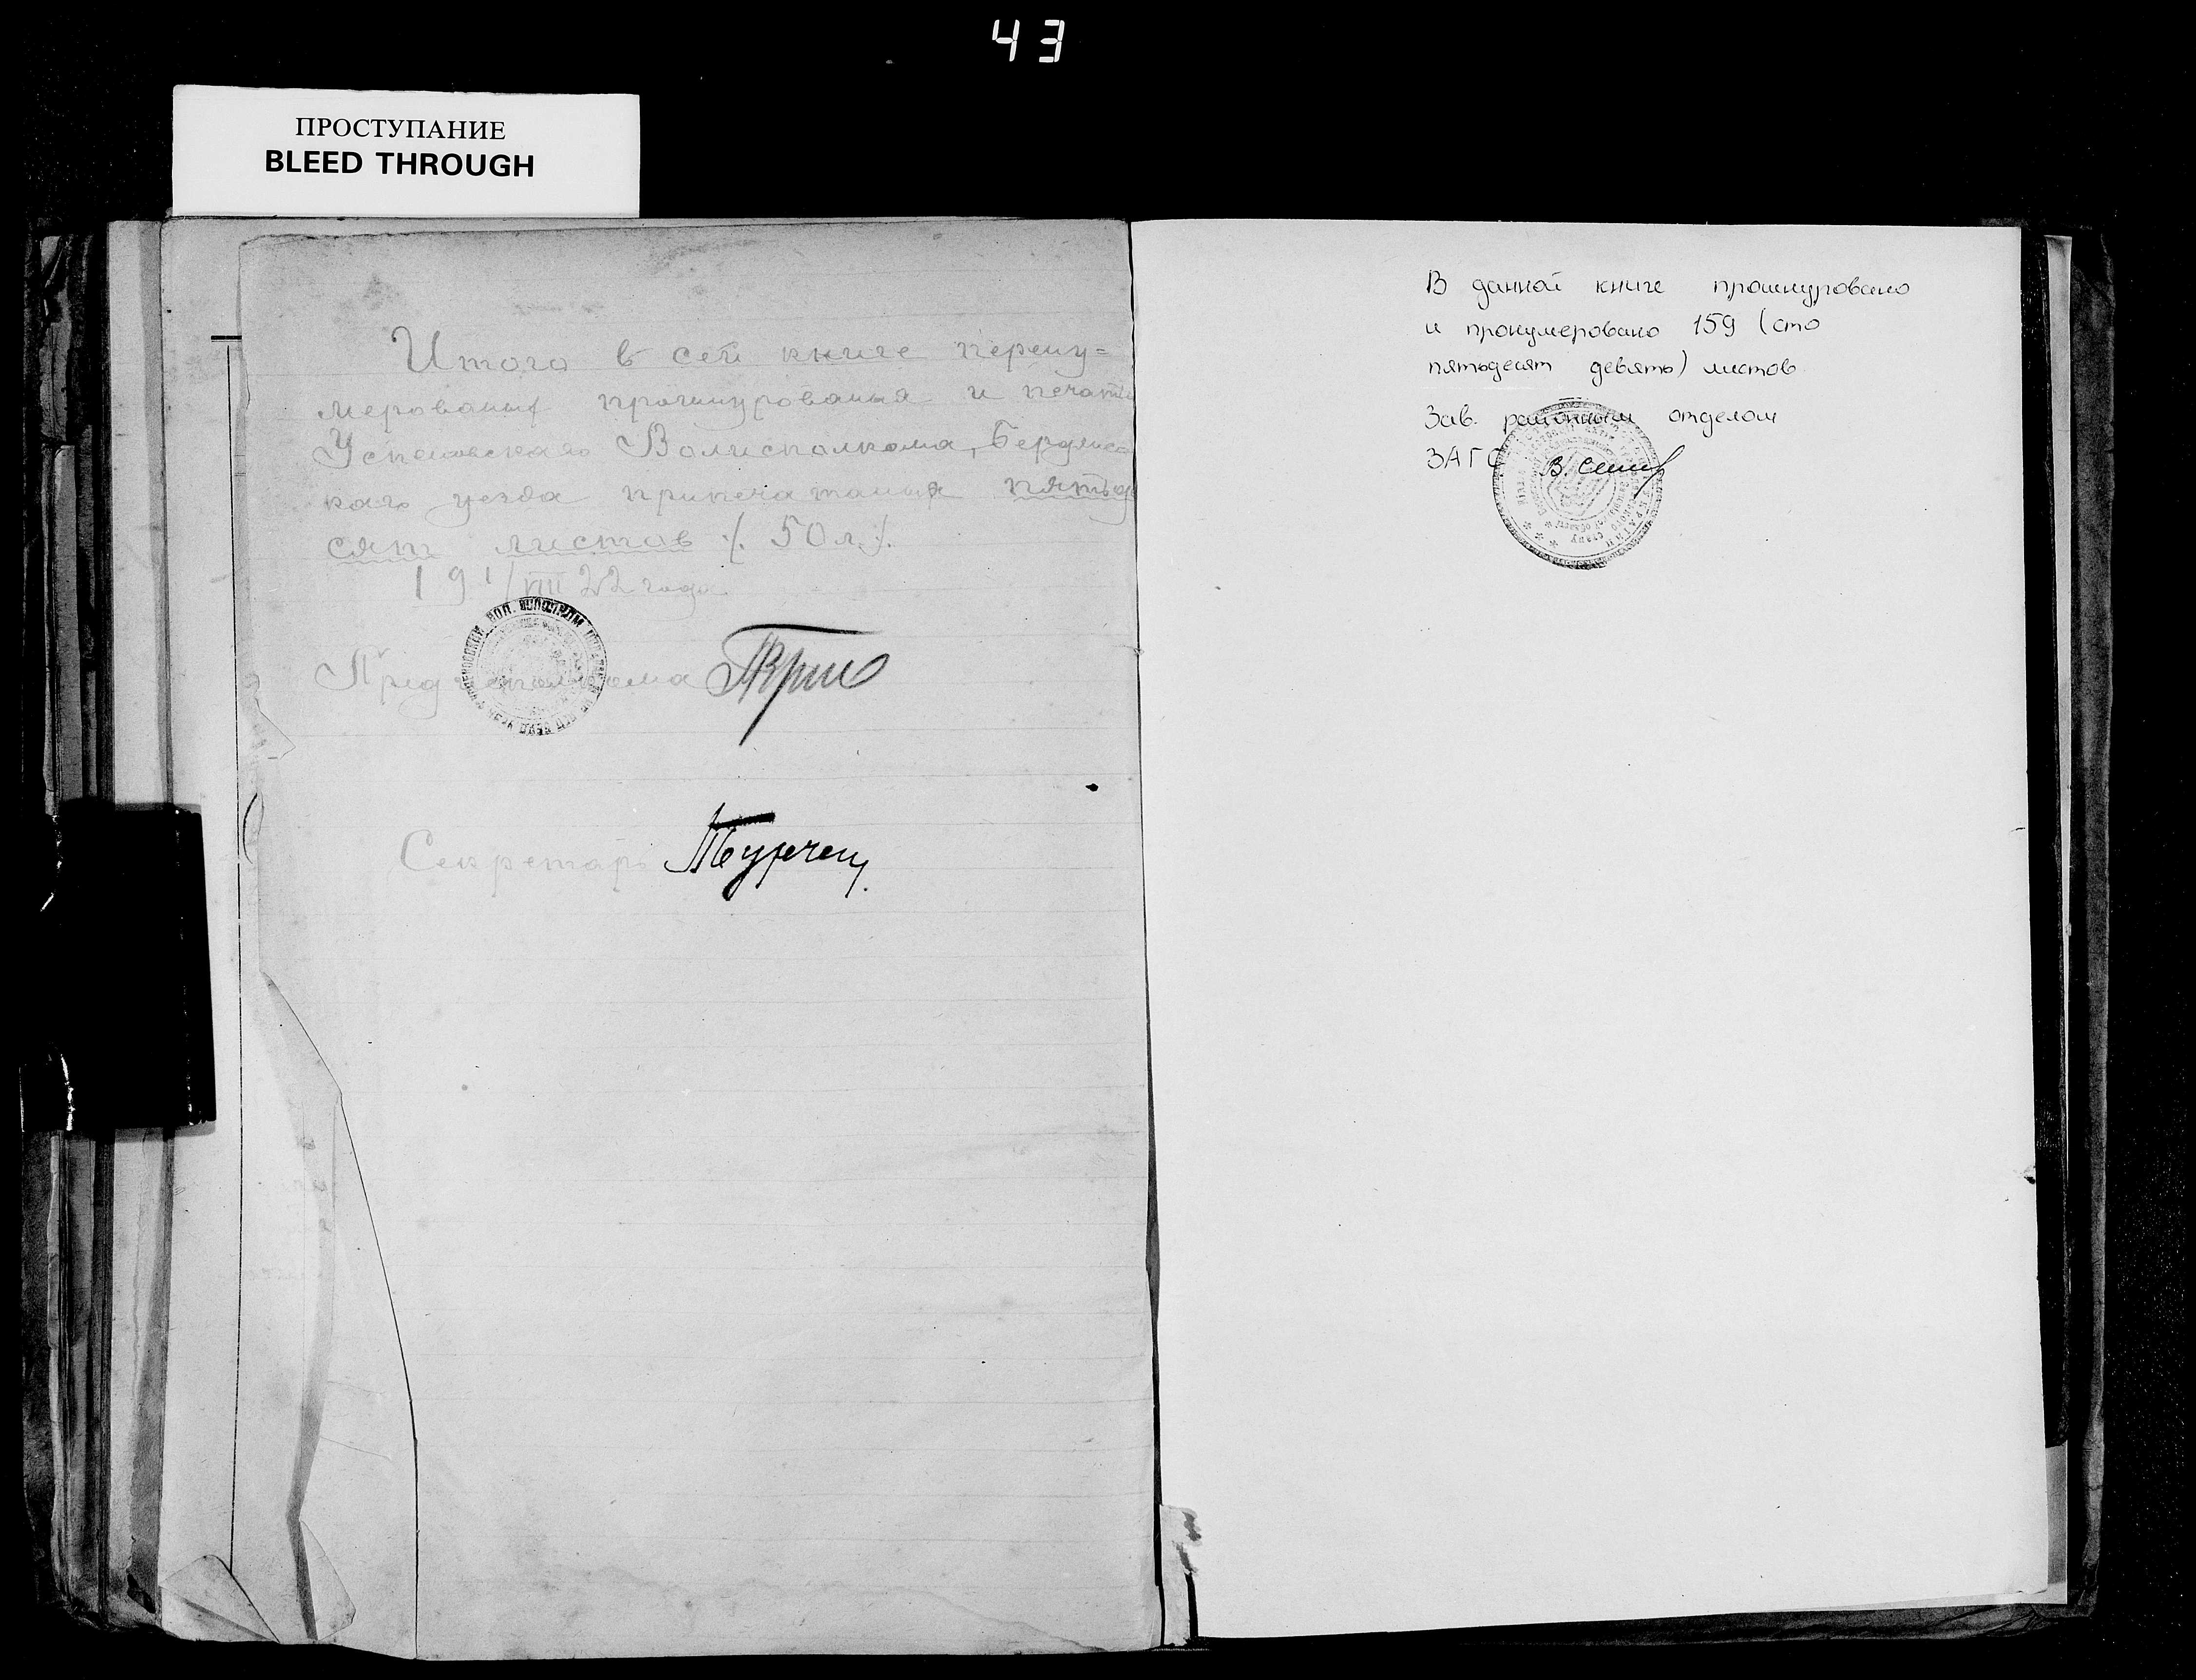 43
ПРОСТУПАНИЕ
BLEED THROUGH
Итого в сей книге перену=
мерованных прошнурования и печати
Успеновскаго Волисполкома, Бердянс-
каго уезда припечатания пятьде
сят листов ./. 50 л. ./.
19 1/VIII 22 года
Пред исполкома
Секретарь
В данной книге прошнуровано
и пронумеровано 159 (сто
пятьдесят девять) листов
Зав. районным отделом
ЗАГС